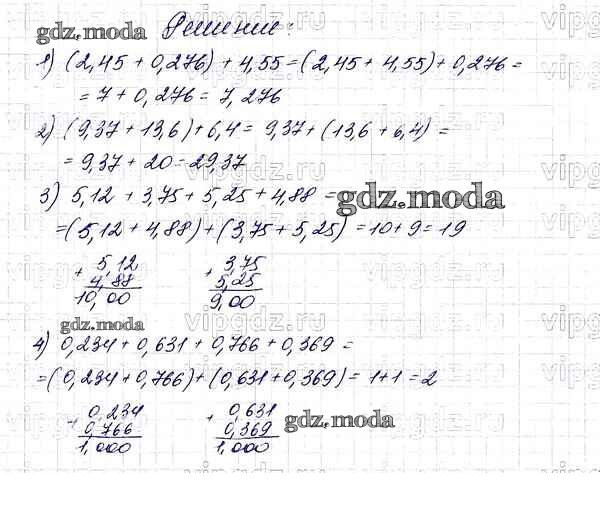 gdz.moda Решение:
1) (2,45 + 0,276) + 4,55 = (2,45 + 4,55) + 0,276 =
= 7 + 0,276 = 7,276
2) (9,37 + 13,6) + 6,4 = 9,37 + (13,6 + 6,4) =
= 9,37 + 20 = 29,37
3) 5,12 + 3,75 + 5,25 + 4,88 = gdz.moda
= (5,12 + 4,88) + (3,75 + 5,25) = 10 + 9 = 19
+ 5,12 + 3,75
4,88 5,25
10,00 9,00
gdz.moda vipgdz.ru
4) 0,234 + 0,631 + 0,766 + 0,369 =
= (0,234 + 0,766) + (0,631 + 0,369) = 1 + 1 = 2
+ 0,234 + 0,631
0,766 0,369 gdz.moda
1,000 1,000